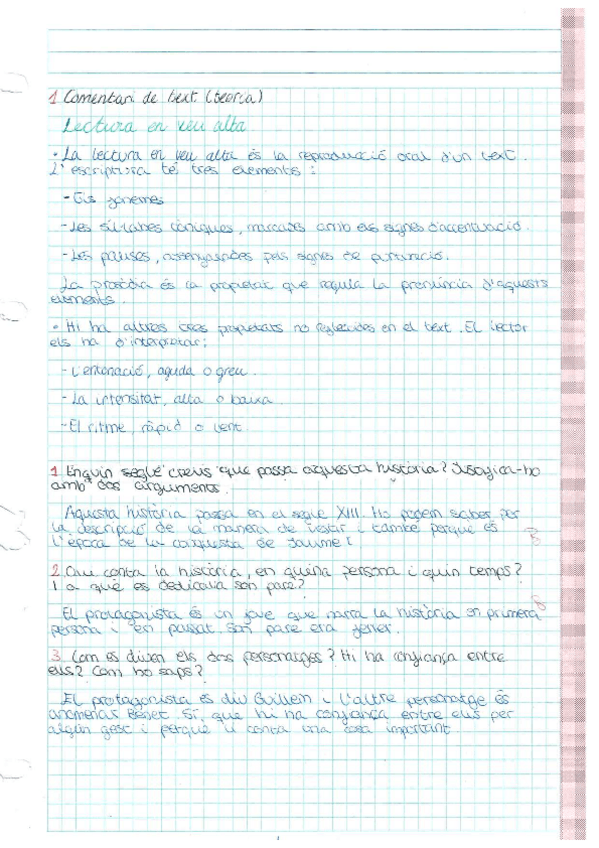 1 Comentari de text (teoria)
Lectura en veu alta
• La lectura en veu alta és la reproducció oral d'un text.
L'escriptura té tres elements:
- Els fonemes
- Les síl·labes tòniques, marcades amb els signes d'accentuació.
- Les pauses, assenyalades pels signes de puntuació.
La prosòdia és la propietat que regula la pronúncia d'aquests
elements.
• Hi ha altres tres propietats no reflectides en el text. El lector
els ha d'interpretar:
- L'entonació, aguda o greu.
- La intensitat, alta o baixa
- El ritme, ràpid o lent
1 En quin segle creus que passa aquesta història? Justifica-ho
amb dos arguments.
Aquesta història passa en el segle XIII. Ho podem saber per
la descripció de la manera de vestir i també perquè és
l'època de la conquesta de Jaume I
B
2. Qui conta la història, en quina persona i quin temps?
I a què es dedicava son pare?
El protagonista és un jove que narra la història en primera
persona i en passat. Son pare era
B
3. Com es diuen els dos personatges? Hi ha confiança entre
ells? Com ho saps?
El protagonista es diu Guillem i l'altre personatge és
anomenat Benet. Sí, que hi ha confiança entre ells per
algún gest i perquè li conta una cosa important